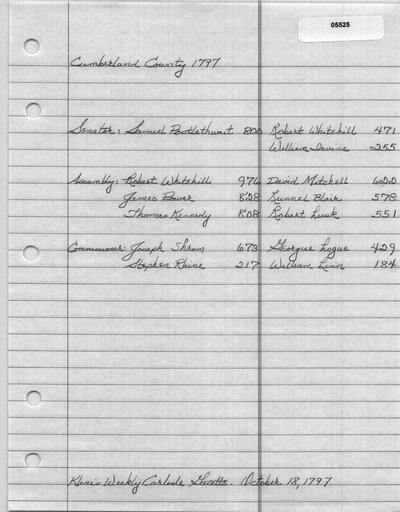 05525
Cumberland County 1797
Senator: Samuel Postlethwait 800 Robert Whitehill 471
William Irvine 255
Assembly: Robert Whitehill 976 David Mitchell 622
James Power 828 Runnel Blair 578
Thomas Kennedy 808 Robert Lusk 551
Commissioner: Joseph Shrom 673 Georgue Logue 429
Stephen Rhine 217 William Linn 184
Kline's Weekly Carlisle Gazette. October 18, 1797